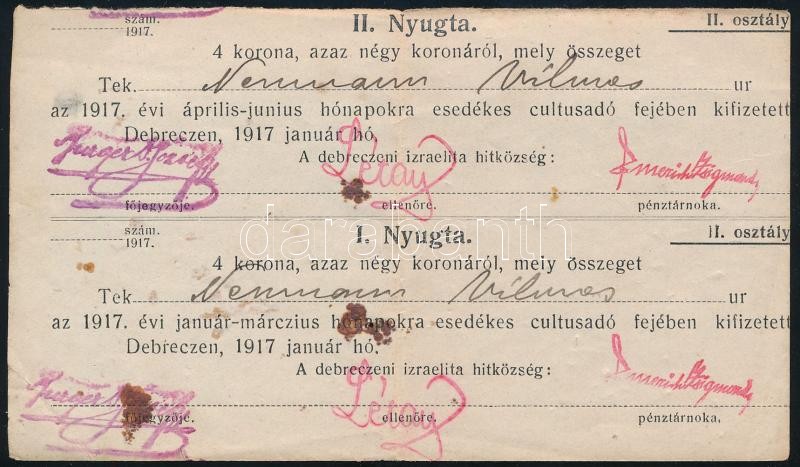 szám.
1917.
II. Nyugta.
II. osztály
4 korona, azaz négy koronáról, mely összeget
Tek. Neumann Vilmos ur
az 1917. évi április-junius hónapokra esedékes cultusadó fejében kifizetett
Debreczen, 1917 január hó.
A debreczeni izraelita hitközség:
főjegyzője. ellenőre. pénztárnoka.
szám.
1917.
I. Nyugta.
II. osztály
4 korona, azaz négy koronáról, mely összeget
Tek. Neumann Vilmos ur
az 1917. évi január-márczius hónapokra esedékes cultusadó fejében kifizetett
Debreczen, 1917 január hó.
A debreczeni izraelita hitközség:
főjegyzője. ellenőre. pénztárnoka.
darabanth